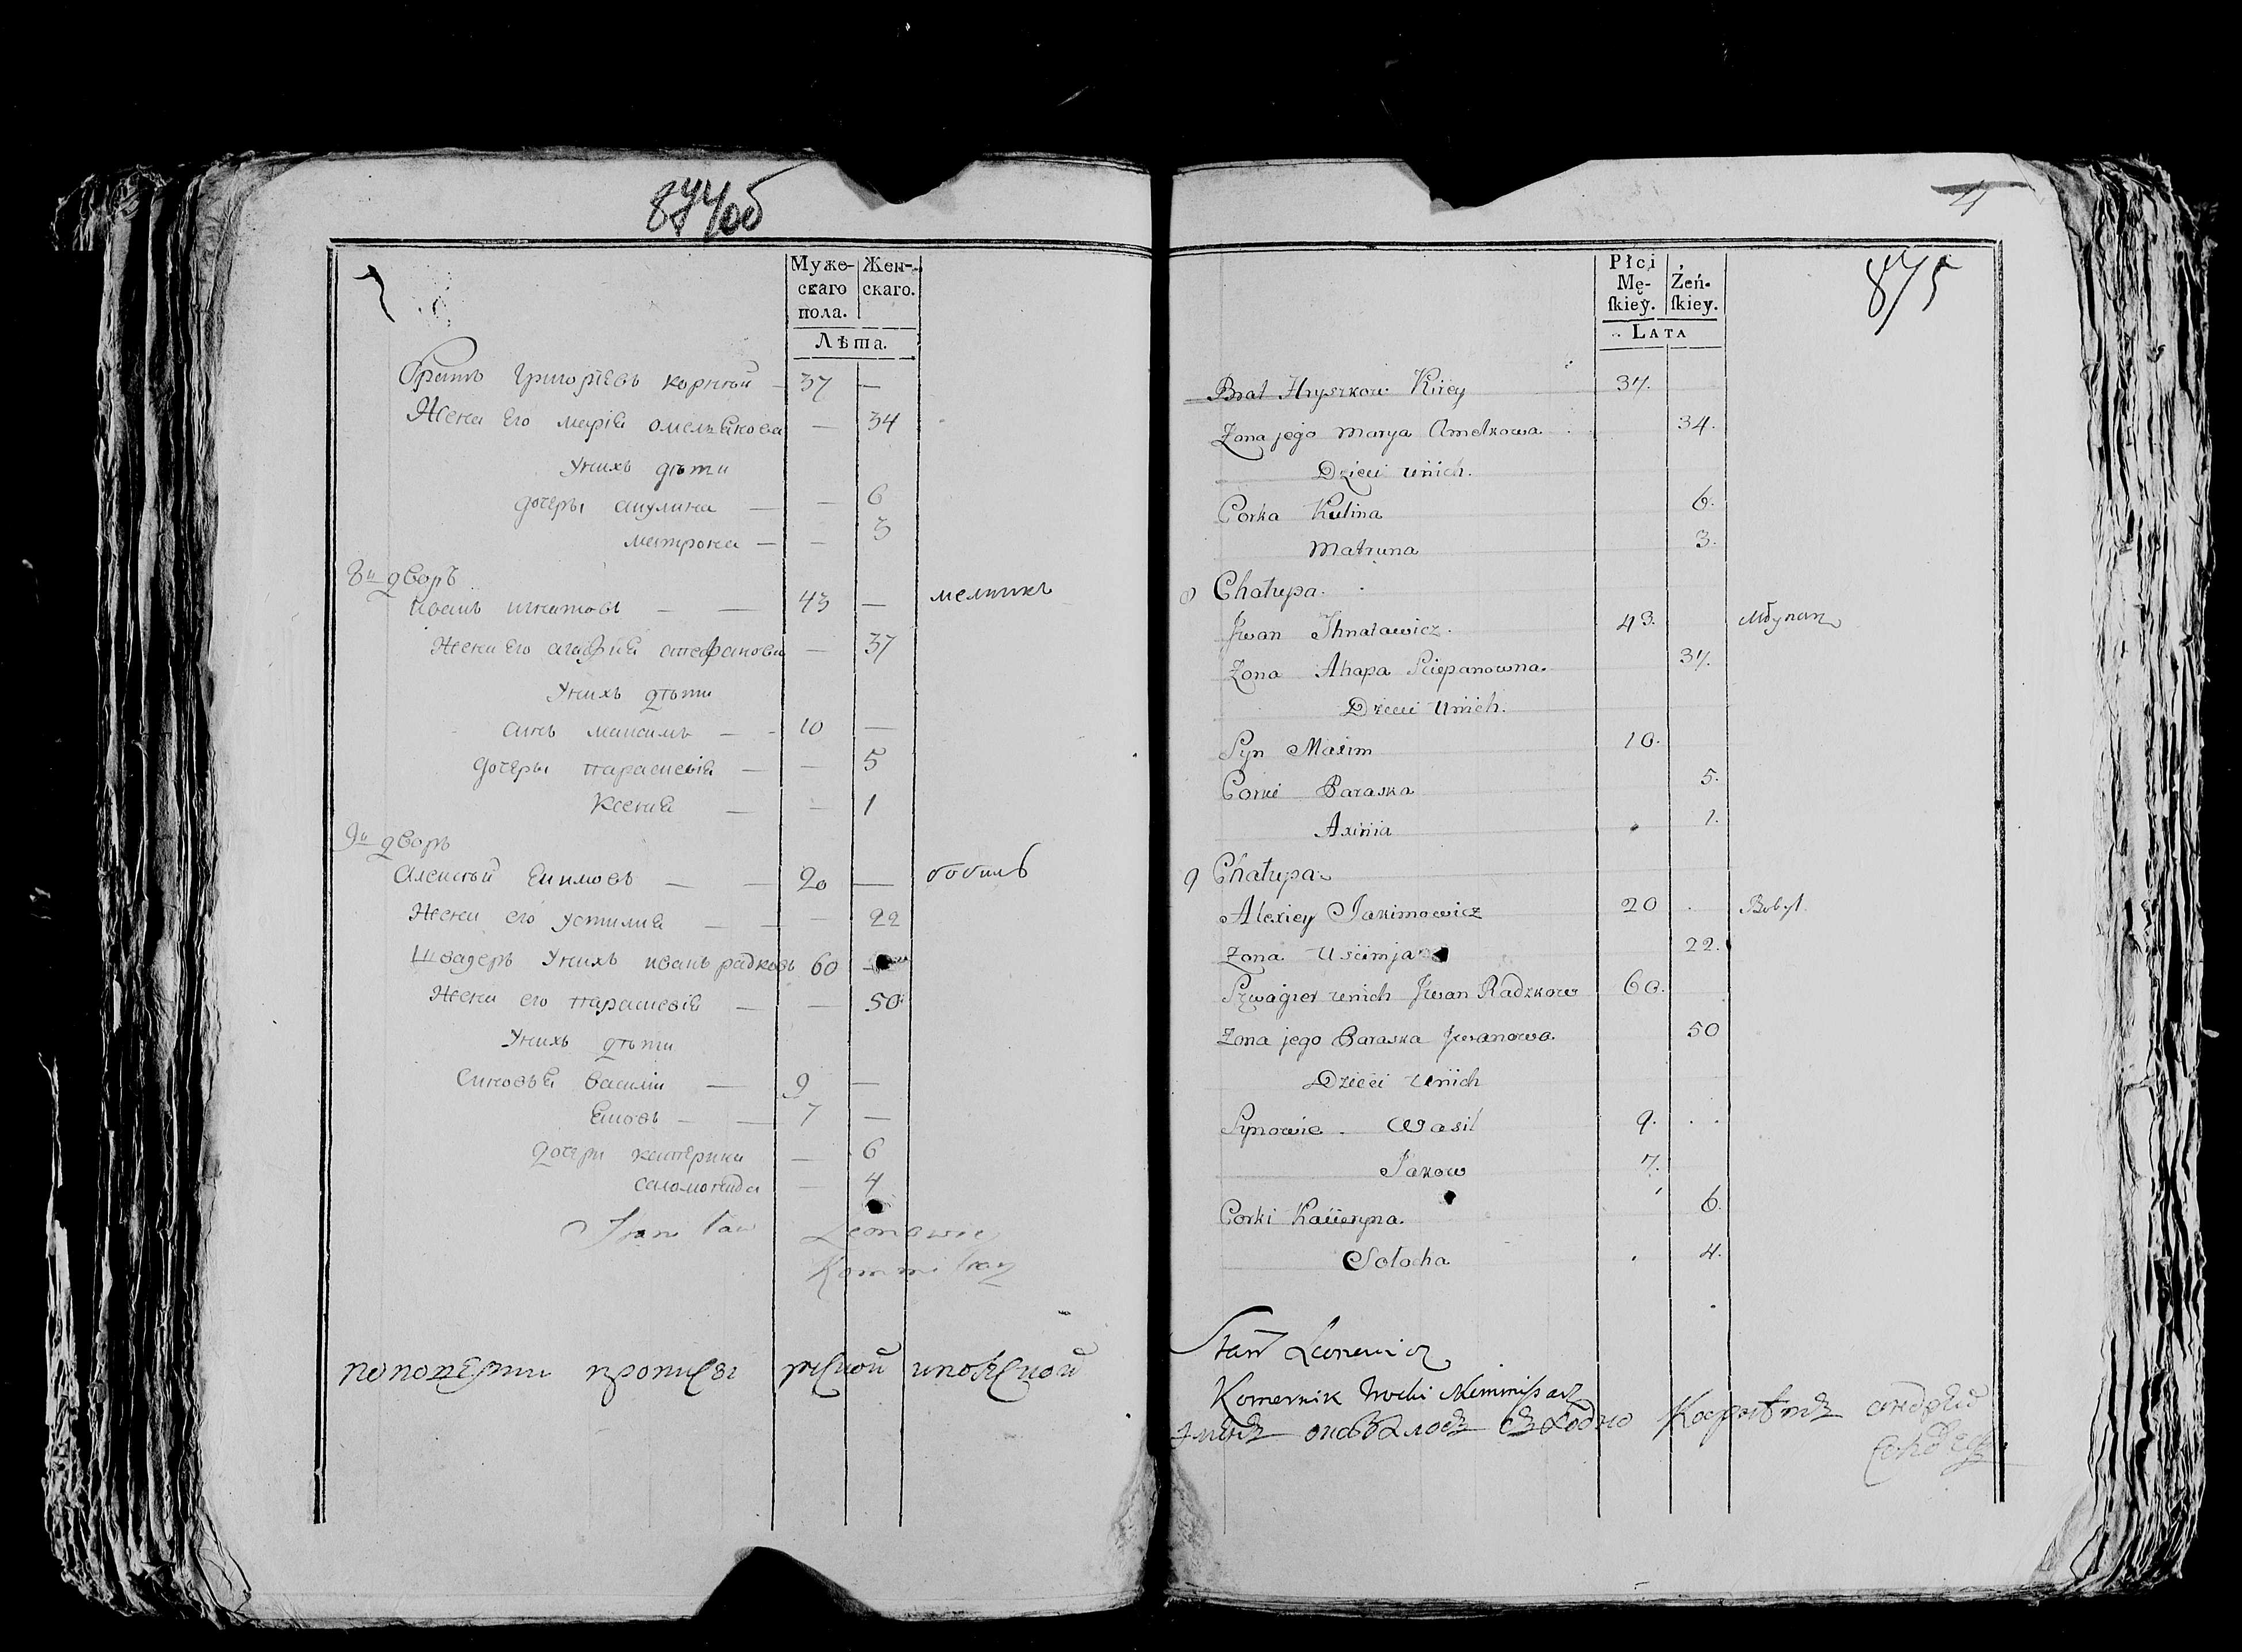 874об
Муже-скаго пола. Жен-скаго.
Лѣта.
братъ григорıевъ корнѣй — 37 —
жена его марıя омельянова — 34
У нихъ дѣти
дочеры акулина — — 6
матрона — — 3
8й дворъ
иванъ игнатовъ — — 43 — мельникъ
жена его агафия стефанова — 37
У нихъ дѣти
синъ максимъ — — 10 —
дочеры параскевıя — — 5
Ксения — — 1
9й дворъ
алексѣй Екимовъ — — 20 — бобиль
жена его устимия — — — 22
Швагеръ У нихъ иванъ радковъ 60 —
жена его параскевıя — — 50
У нихъ дѣти
Синовья василıи — 9 —
Ековъ — — 7 —
дочери катерина — 6
саломонида — 4
Kommissarz
по поверки прописи руской и польской
4
875
Płci Mę-ſkiey. Żeń-ſkiey.
Lata
Brat Hryszkow Kirey 37.
Zona jego Marya Amelkowa 34.
Dzieci u nich.
Corka Kulina 6.
Matruna 3.
8 Chałupa.
Jwan Ihnatawicz. 43.
Zona Ahapa Sciepanowna. 37.
Dzieci u nich.
Syn Maxim 10.
Corki Paraska 5.
Axinia 1.
9 Chałupa.
Alexiey Jakimowicz 20 Bobyl.
Zona Uscimja 22.
Szwagier u nich Jwan Radzkow 60.
Zona jego Paraska Jwanowa. 50
Dzieci u nich
Synowie. Wasil 9.
Jakow 7.
Corki Kacieryna. 6.
Sołocha 4.
Komornik Trocki Kommissarz